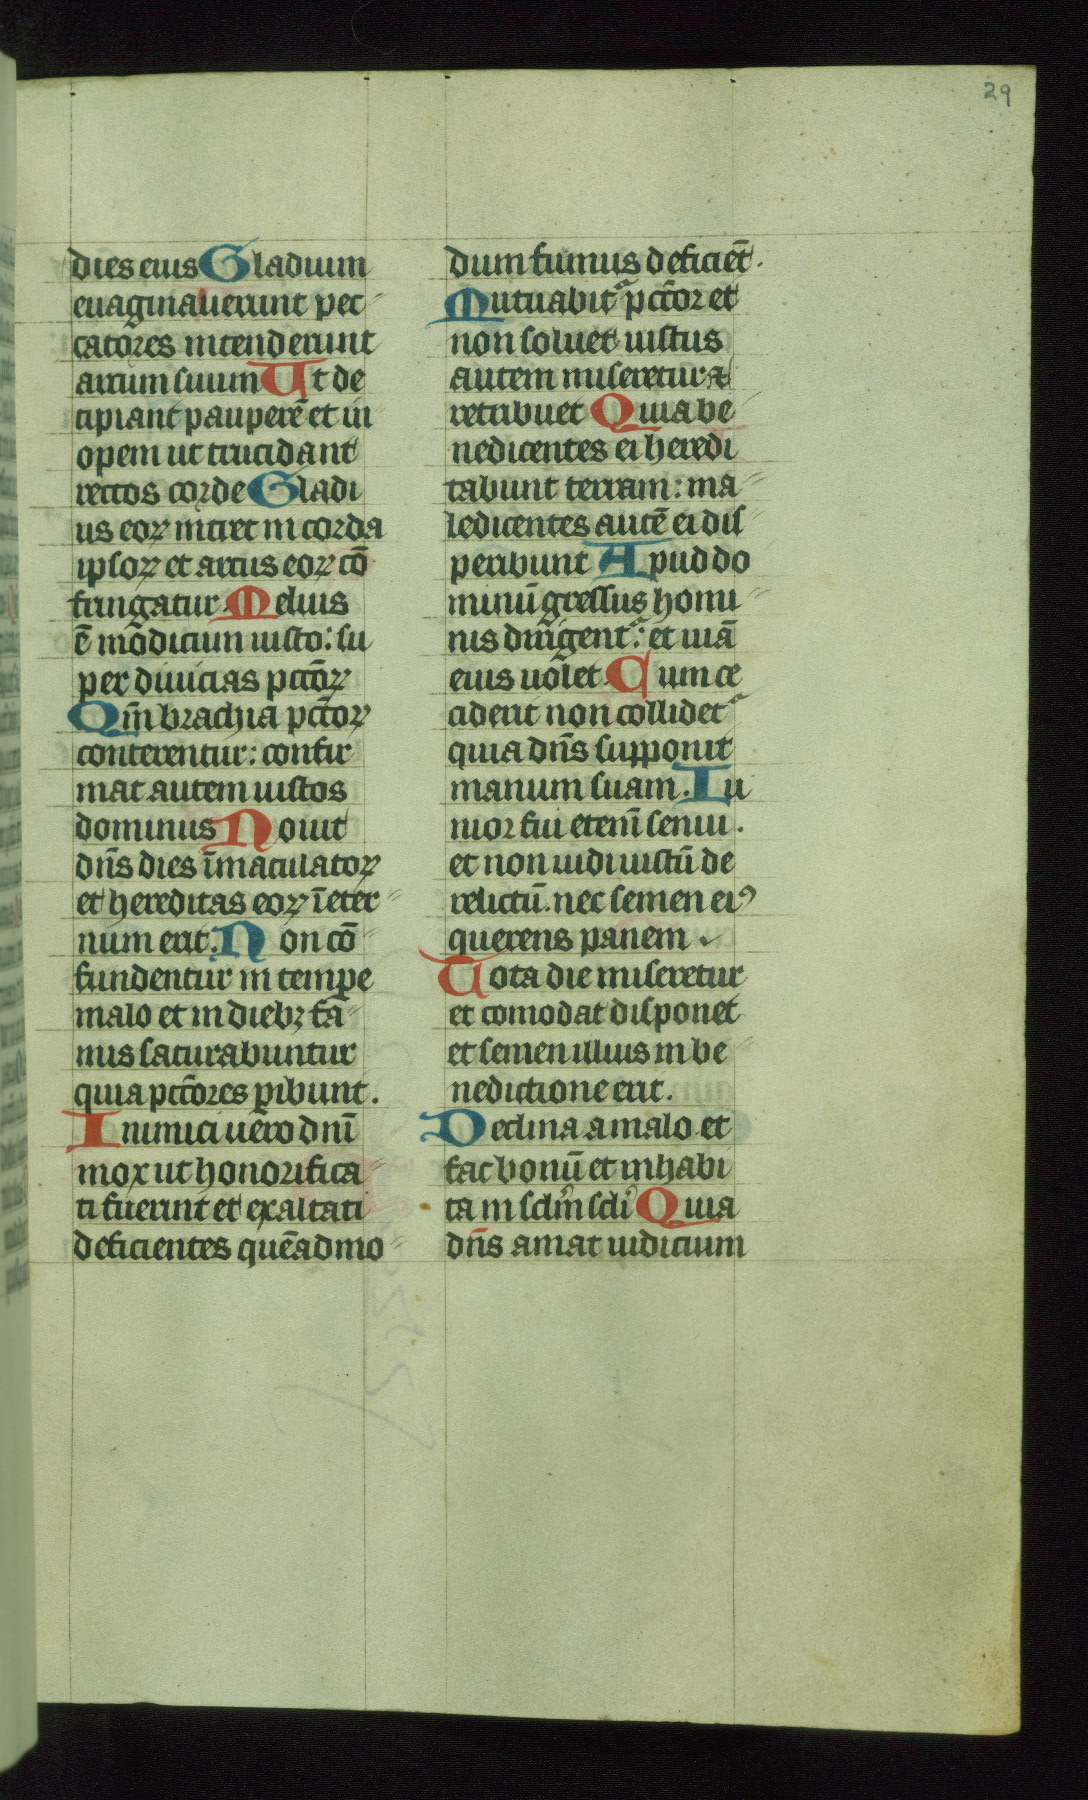 29
dies eius Gladium
euaginauerunt pec
catores intenderunt
arcum suum Ut de
cipiant pauperē et in
opem ut trucidant
rectos corde Gladi
us eoꝝ intret in corda
ipsoꝝ et arcus eoꝝ cō
fringatur. Melius
ē modicum iusto: su
per diuicias pctōꝝ
Qm̄ brachia pctōꝝ
conterentur: confir
mat autem iustos
dominus Nouit
dn̄s dies īmaculatoꝝ
et hereditas eoꝝ ī eter
num erit. Non cō
fundentur in tempe
malo et in diebꝫ fa
mis saturabuntur
quia pctōres ꝑibunt.
Inimici uero dn̄i
mox ut honorifica
ti fuerint et exaltati
deficientes quēadmo
dum fumus deficiēt.
Mutuabit᷑ pctōr et
non soluet iustus
autem miseretur ⁊
retribuet Quia be
nedicentes ei heredi
tabunt terram: ma
ledicentes autē ei dis
peribunt Apud do
minū gressus homi
nis dirigent᷑: et uiā
eius uolet. Cum ce
ciderit non collidet᷑
quia dn̄s supponit
manum suam. Iu
nior fui etenī senui.
et non uidi iustū de
relictū. nec semen eiꝰ
querens panem.
Tota die miseretur
et comodat disponet
et semen illius in be
nedictione erit.
Declina a malo et
fac bonū et inhabi
ta in sclm̄ scli̅ Quia
dn̄s amat iudicium